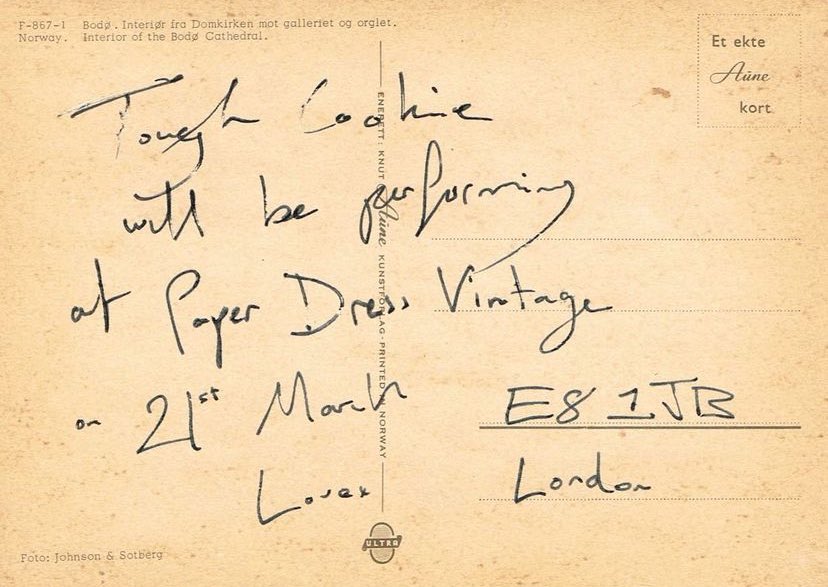 F-867-1 Bodø. Interiør fra Domkirken mot galleriet og orglet.
Norway. Interior of the Bodø Cathedral.
Et ekte
Aüne
kort
Tough Cookie
will be performing
at Paper Dress Vintage
on 21st March
Lovex
E8 1JB
London
ENERETT: KNUT Aüne KUNSTFORLAG · PRINTED IN NORWAY
ULTRA
Foto: Johnson & Sotberg